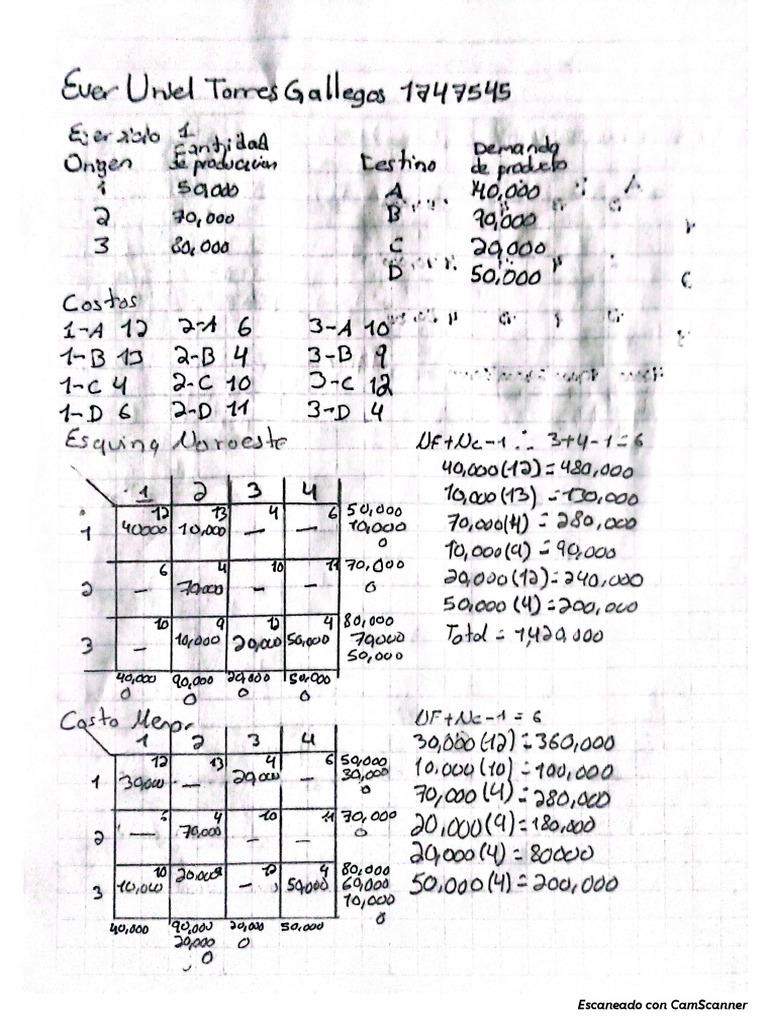 Ever Uriel Torres Gallegos 1747545
Ejercicio 1
Origen Cantidad de produccion Destino Demanda de producto
1 50,000 A 40,000
2 70,000 B 90,000
3 80,000 C 20,000
D 50,000
Costos
1-A 12 2-A 6 3-A 10
1-B 13 2-B 4 3-B 9
1-C 4 2-C 10 3-C 12
1-D 6 2-D 11 3-D 4
Esquina Noroeste NF+Nc-1 ∴ 3+4-1=6
40,000(12)=480,000
10,000(13)=130,000
70,000(4)=280,000
10,000(9)=90,000
20,000(12)=240,000
50,000(4)=200,000
Total = 1,420,000
1 2 3 4
12 13 4 6 50,000
1 40000 10,000 — — 10,000
0
6 4 10 11 70,000
2 — 70,000 — — 0
10 9 12 4 80,000
3 — 10,000 20,000 50,000 70,000
50,000
40,000 90,000 20,000 50,000
0 0 0 0
Costo Menor NF+Nc-1=6
30,000(12)=360,000
10,000(10)=100,000
70,000(4)=280,000
20,000(9)=180,000
20,000(4)=80000
50,000(4)=200,000
1 2 3 4
12 13 4 6 50,000
1 30,000 — 20,000 — 30,000
0
4 10 11 70,000
2 — 70,000 — — 0
10 12 4 80,000
3 10,000 20,000 — 50,000 60,000
10,000
0
40,000 90,000 20,000 50,000
20,000 0
0
Escaneado con CamScanner